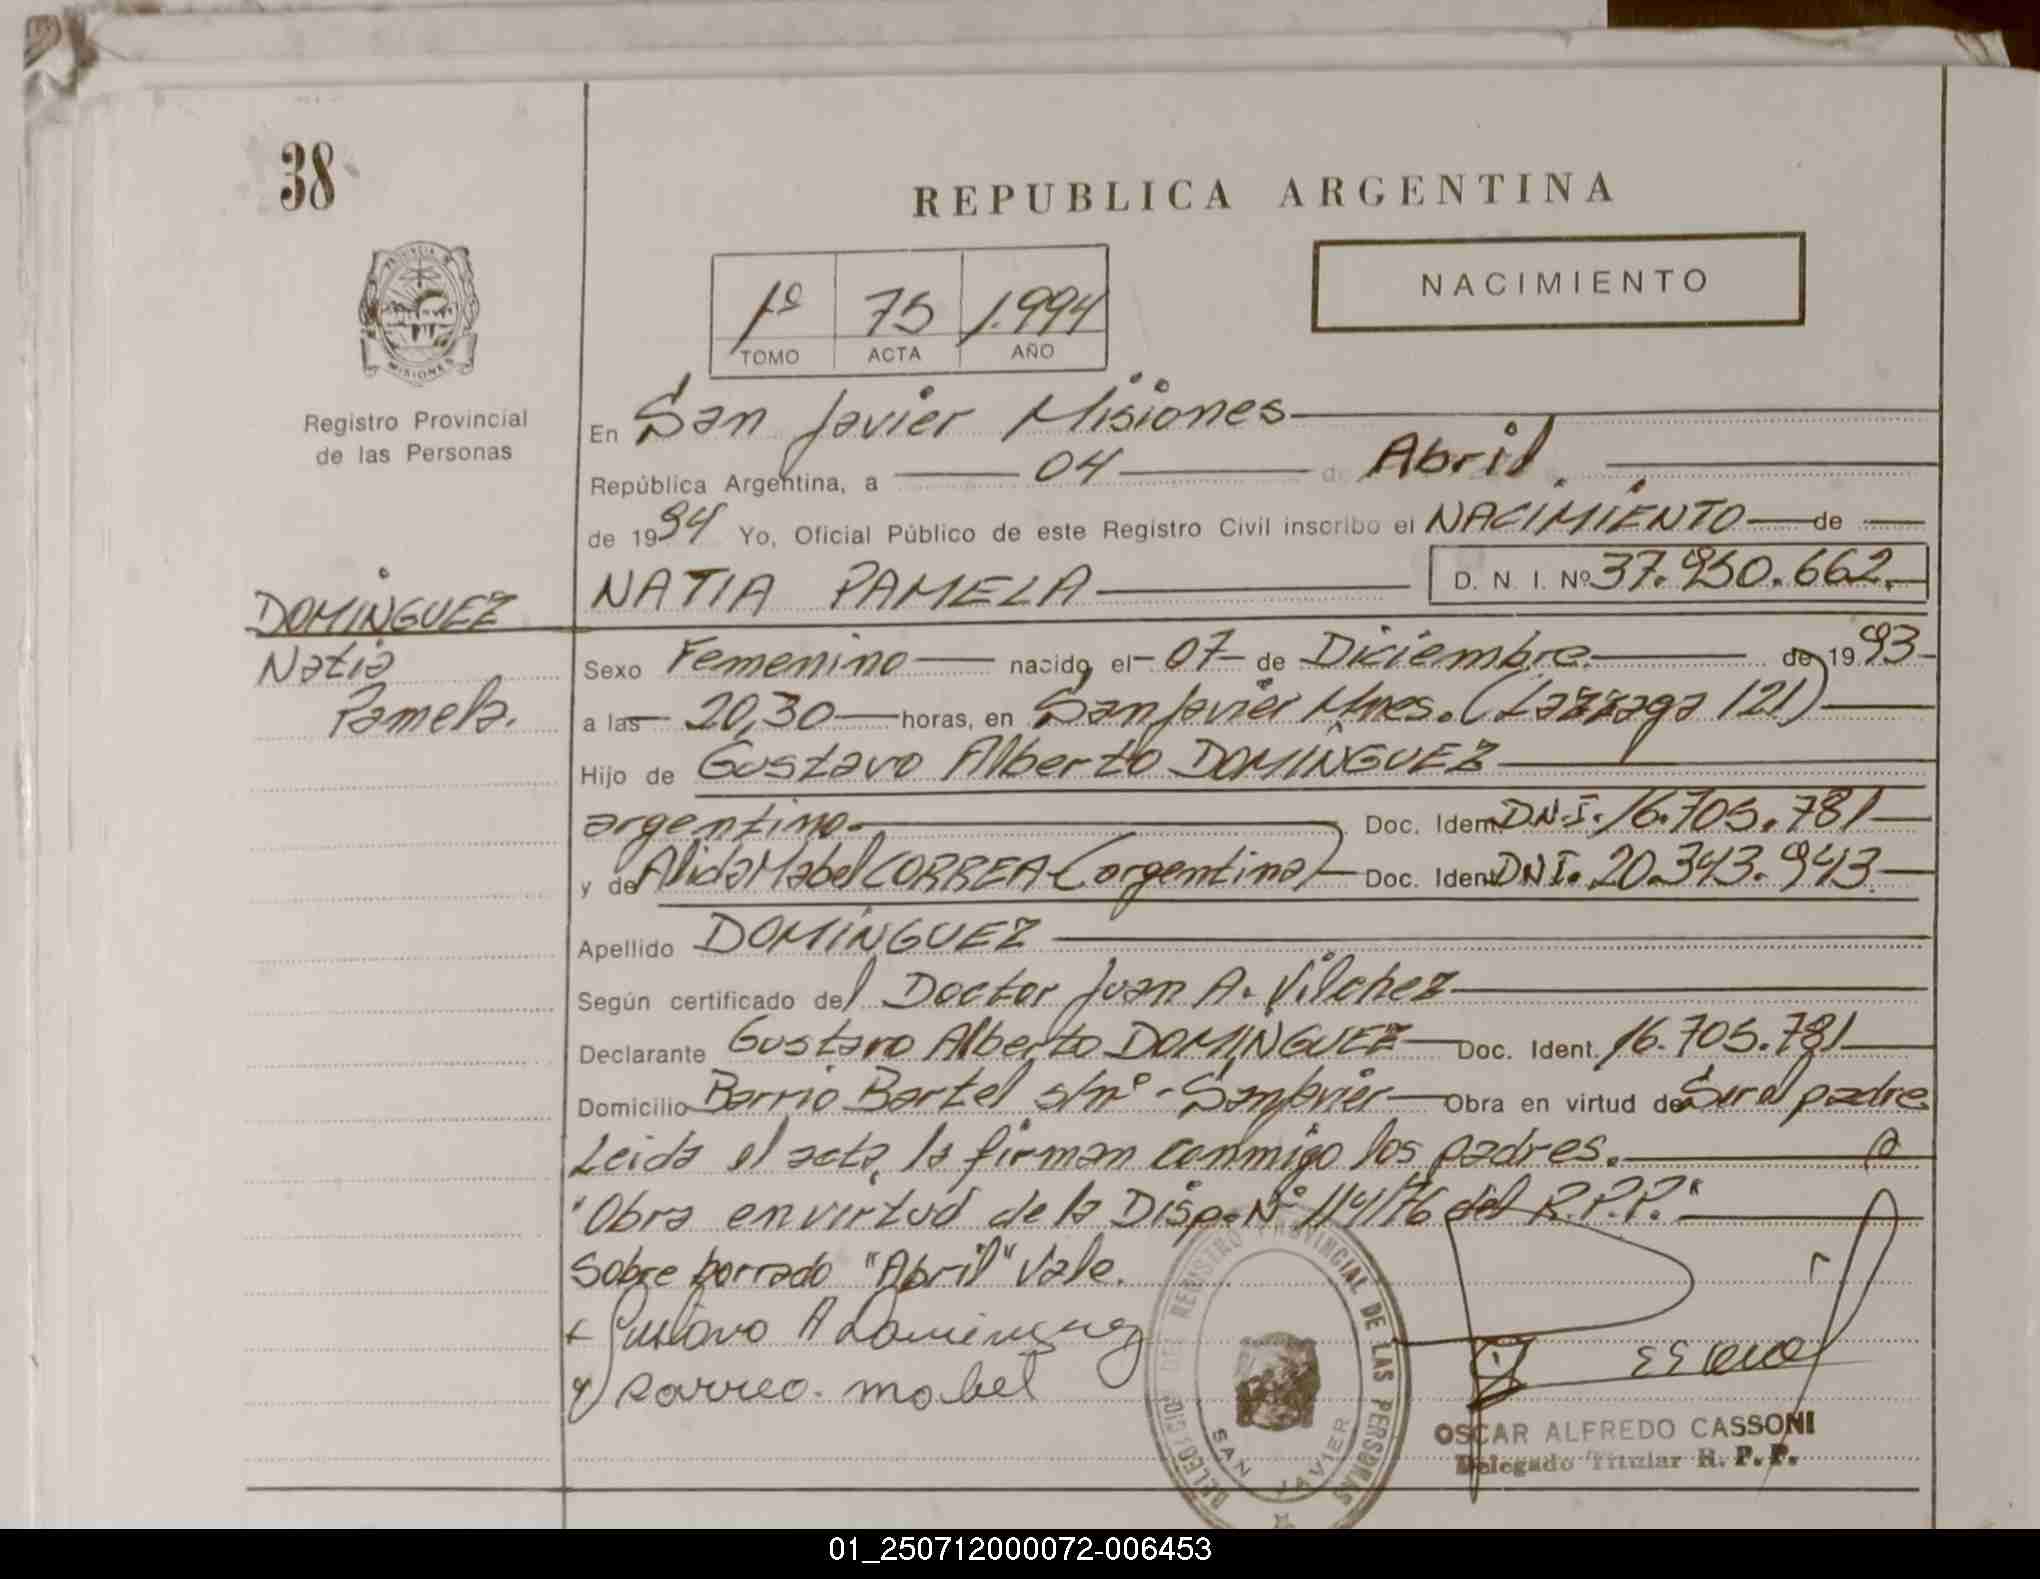 38
REPUBLICA ARGENTINA
NACIMIENTO
1º 75 1.994
TOMO ACTA AÑO
PROVINCIA DE
MISIONES
Registro Provincial
de las Personas
En San Javier Misiones
República Argentina, a 04 de Abril
de 1994 Yo, Oficial Público de este Registro Civil inscribo el NACIMIENTO de
NATIA PAMELA D. N. I. Nº 37.950.662.
DOMINGUEZ
Natia
Pamela.
Sexo Femenino nacido el 07 de Diciembre de 1993
a las 20,30 horas, en San Javier Mnes. (Lazzaga 121)
Hijo de Gustavo Alberto DOMINGUEZ
argentino Doc. Ident. D.N.I. 16.705.781
y de Alida Mabel CORREA (argentina) Doc. Ident. DNI. 20.343.943
Apellido DOMINGUEZ
Según certificado del Doctor Juan A. Vilchez
Declarante Gustavo Alberto DOMINGUEZ Doc. Ident. 16.705.781
Domicilio Barrio Bartel s/nº - San Javier Obra en virtud de Ser el padre
Leida el acta, la firman conmigo los padres.
"Obra en virtud de la Disp. Nº 114/76 del R.P.P."
Sobre borrado "Abril" Vale.
Gustavo A Dominguez
Correa. mabel
DELEGACION DEL REGISTRO PROVINCIAL DE LAS PERSONAS
SAN JAVIER
OSCAR ALFREDO CASSONI
Delegado Titular R. P. P.
01_250712000072-006453